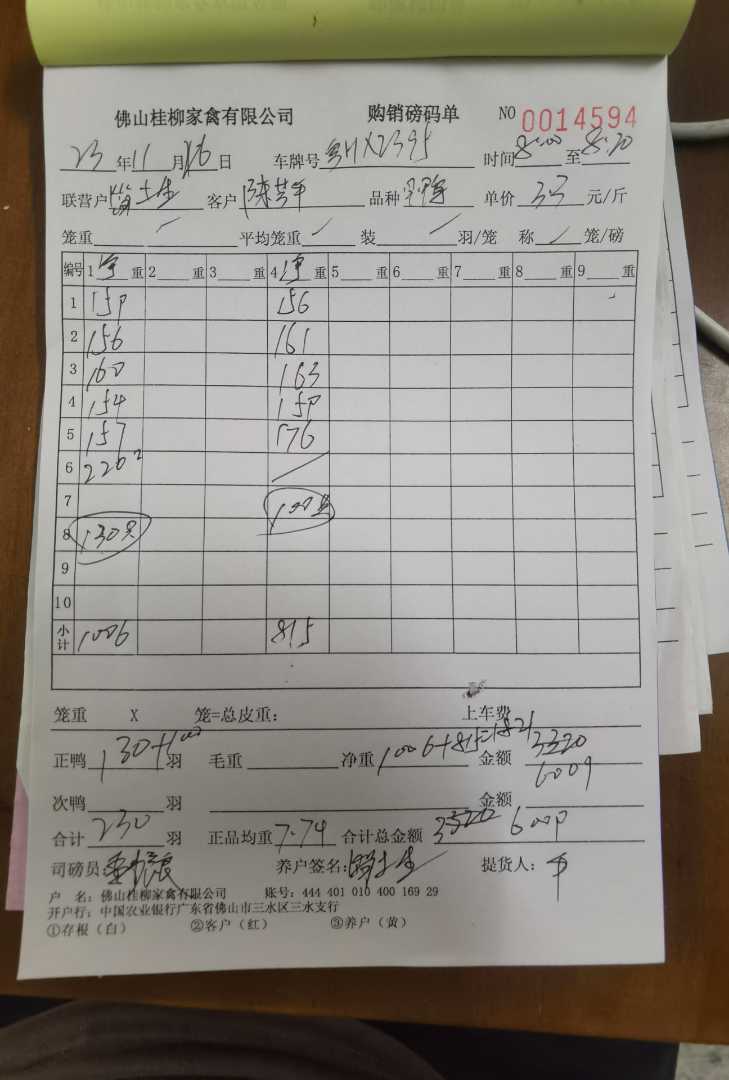 佛山桂柳家禽有限公司 购销磅码单 NO 0014594
23年11月16日 车牌号 粤HX2395 时间8:00至8:20
联营户 客户 品种 单价 33 元/斤
笼重 平均笼重 装 羽/笼 称 笼/磅
编号 1 重 2 重 3 重 4 重 5 重 6 重 7 重 8 重 9 重
1 159 156
2 156 161
3 160 163
4 154 159
5 157 176
6 220²
7 100只
8 130只
9
10
小计 1006 815
笼重 X 笼=总皮重: 上车费
正鸭 130+100 羽 毛重 净重 1006+815=1821 金额 3320
6009
次鸭 羽 金额
合计 230 羽 正品均重 7.74 合计总金额 6009
司磅员 养户签名: 提货人: 平
户 名: 佛山桂柳家禽有限公司 账号: 444 401 010 400 169 29
开户行: 中国农业银行广东省佛山市三水区三水支行
①存根(白) ②客户(红) ③养户(黄)